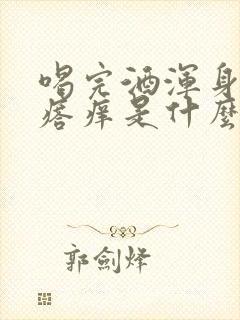 喝完酒渾身
疙瘩是什麼
郭劍烽